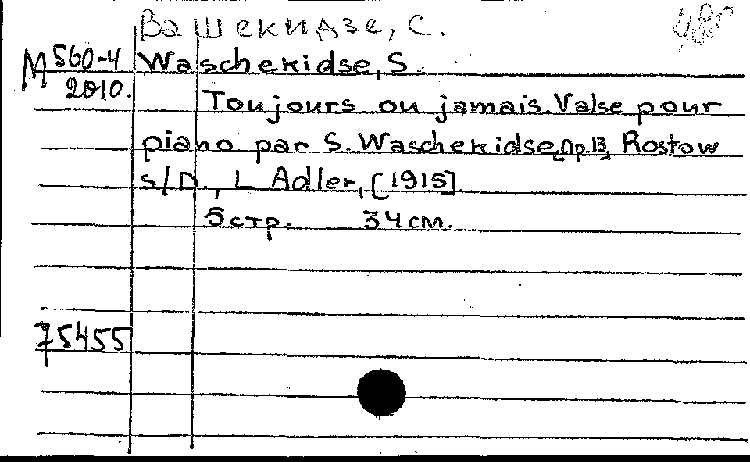 Вашекидзе, С.
M 560-4 Waschekidse, S.
2010.
Toujours ou jamais. Valse pour
piano par S. Waschekidse, Op. 13, Rostow
s/D., L. Adler, [1915]
5 стр. 34 см.
75455